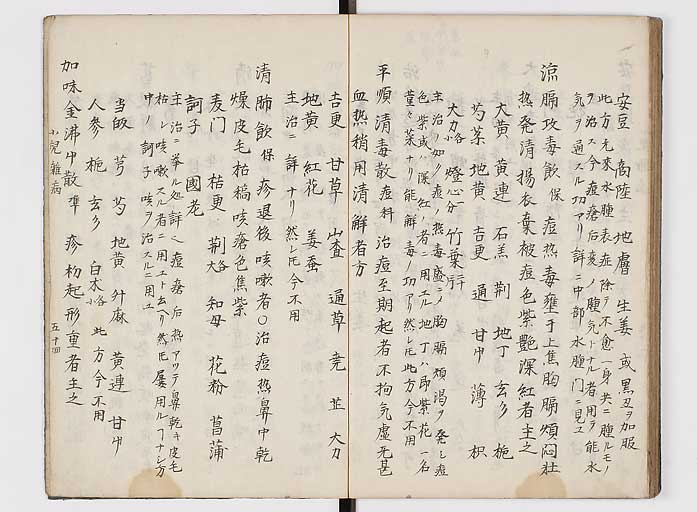 安豆 商陸 地膚 生姜 或黒丑ヲ加服
此方元來水腫表症除テ不愈一身尖ニ腫ルモノ
ヲ治ス今痘瘡后変ノ腫気トナル者用テ能水
気ヲ通スル功アリ詳ニ中部水腫門ニ見ユ
涼膈攻毒飲 保 痘熱毒壅于上焦胸膈煩悶壮
熱発渇揚衣棄被痘色紫艶深紅者主之
大黄 黄連 石羔 荆 地丁 玄参 梔
芍薬 地黄 吉更 通 甘中 薄 枳
大力 各小 燈心 一分 竹葉
主治ノ如ク痘ノ熱毒盛ニメ胸膈煩渇ヲ発シ痘
色紫或ハ深紅ノ者ニ用エル地丁ハ即紫花一名
菫々菜ナリ能解毒ノ功アリ然レ𪜈此方今不用
平順清毒散 痘科 治痘至期起者不拘気虚无甚
血熱稍用清解者方
吉更 甘草 山査 通草 芎 芷 大力
地黄 紅花 姜蚕
主治ニ詳ナリ然レ𪜈今不用
清肺飲 保 疹退後咳嗽者○治痘熱鼻中乾
燥皮毛枯槁咳瘡色焦紫
麦門 枯更 荆 各大 知母 花粉 菖蒲
訶子 國老
主治ニ挙ル処詳ヘ痘瘡后熱アツテ鼻乾キ皮毛
枯レ咳嗽スル者ニ用エト云ヘリ然𪜈屢用ルヿナシ方
中ノ訶子咳ヲ治スルニ用ユ
加味金沸中散 準 疹初起形重者主之
当皈 芎 芍 地黄 升麻 黄連 甘中
人参 梔 玄参 白朮 各小 此方今不用
小児雑病 五十四